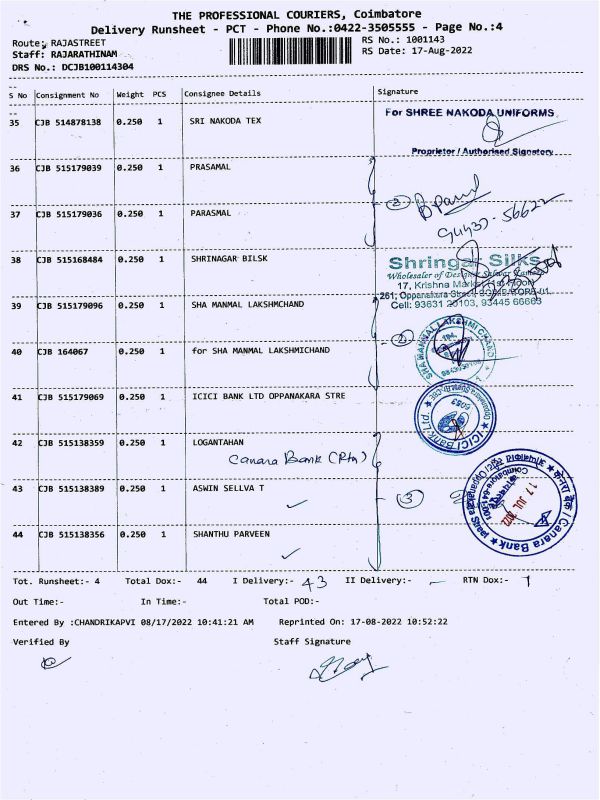 THE PROFESSIONAL COURIERS, Coimbatore
Delivery Runsheet - PCT - Phone No.:0422-3505555 - Page No.:4
Route: RAJASTREET
RS No.: 1001143
Staff: RAJARATHINAM
RS Date: 17-Aug-2022
DRS No.: DCJB100114304
S No Consignment No Weight PCS Consignee Details Signature
35 CJB 514878138 0.250 1 SRI NAKODA TEX
For SHREE NAKODA UNIFORMS
Proprietor / Authorised Signatory
36 CJB 515179039 0.250 1 PRASAMAL
2
37 CJB 515179036 0.250 1 PARASMAL
38 CJB 515168484 0.250 1 SHRINAGAR BILSK
Shringar Silks
Wholesaler of Designer
17, Krishna Market
261, Oppanakara Street,
Cell: 93631 20103, 93445 66663
39 CJB 515179096 0.250 1 SHA MANMAL LAKSHMCHAND
40 CJB 164067 0.250 1 for SHA MANMAL LAKSHMICHAND
SHA MANMAL LAKSHMI CHAND
41 CJB 515179069 0.250 1 ICICI BANK LTD OPPANAKARA STRE
ICICI Bank Ltd.
6053
42 CJB 515138359 0.250 1 LOGANTAHAN
Canara Bank (Rtn)
43 CJB 515138389 0.250 1 ASWIN SELLVA T
3
केनरा बैंक / Canara Bank
17 JUL 2022
44 CJB 515138356 0.250 1 SHANTHU PARVEEN
Tot. Runsheet:- 4 Total Dox:- 44 I Delivery:- 43 II Delivery:- - RTN Dox:- 1
Out Time:- In Time:- Total POD:-
Entered By :CHANDRIKAPVI 08/17/2022 10:41:21 AM Reprinted On: 17-08-2022 10:52:22
Verified By Staff Signature